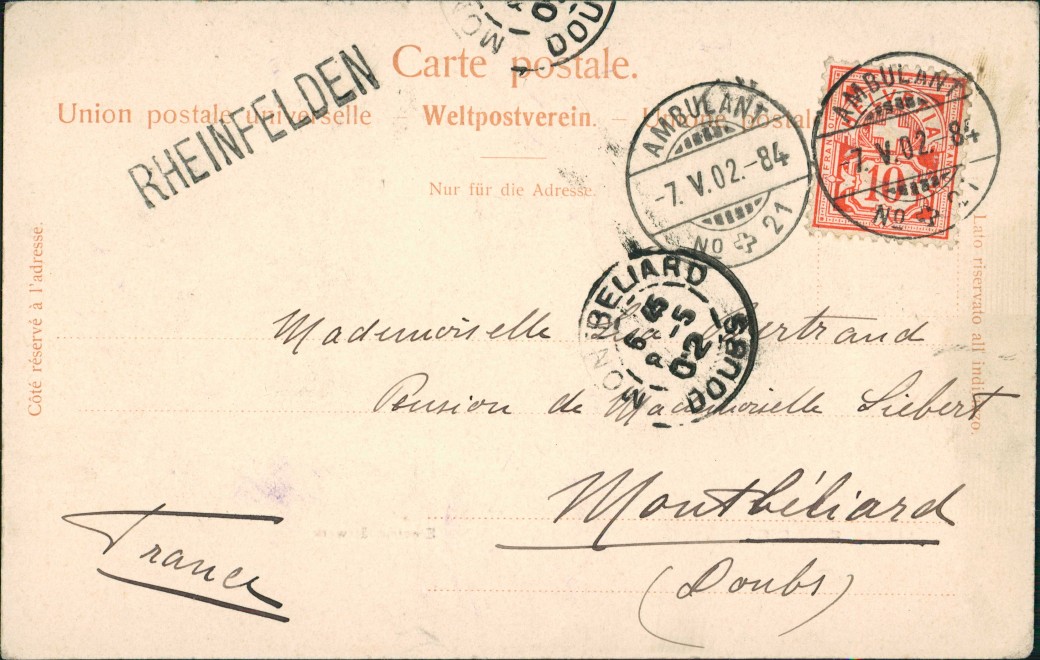 MO
DOU
Carte postale.
RHEINFELDEN
Union postale universelle – Weltpostverein. – postal
Nur für die Adresse.
AMBULANT
-7.V.02.-84
No 21
AMBULANT
-7.V.02.-84
No 21
10
Côté réservé à l'adresse.
Lato riservato all' indirizzo.
MONTBELIARD
6 5
02
DOUBS
Mademoiselle Bertrand
Pension de Mademoiselle Siebert
Montbéliard
(Doubs)
France